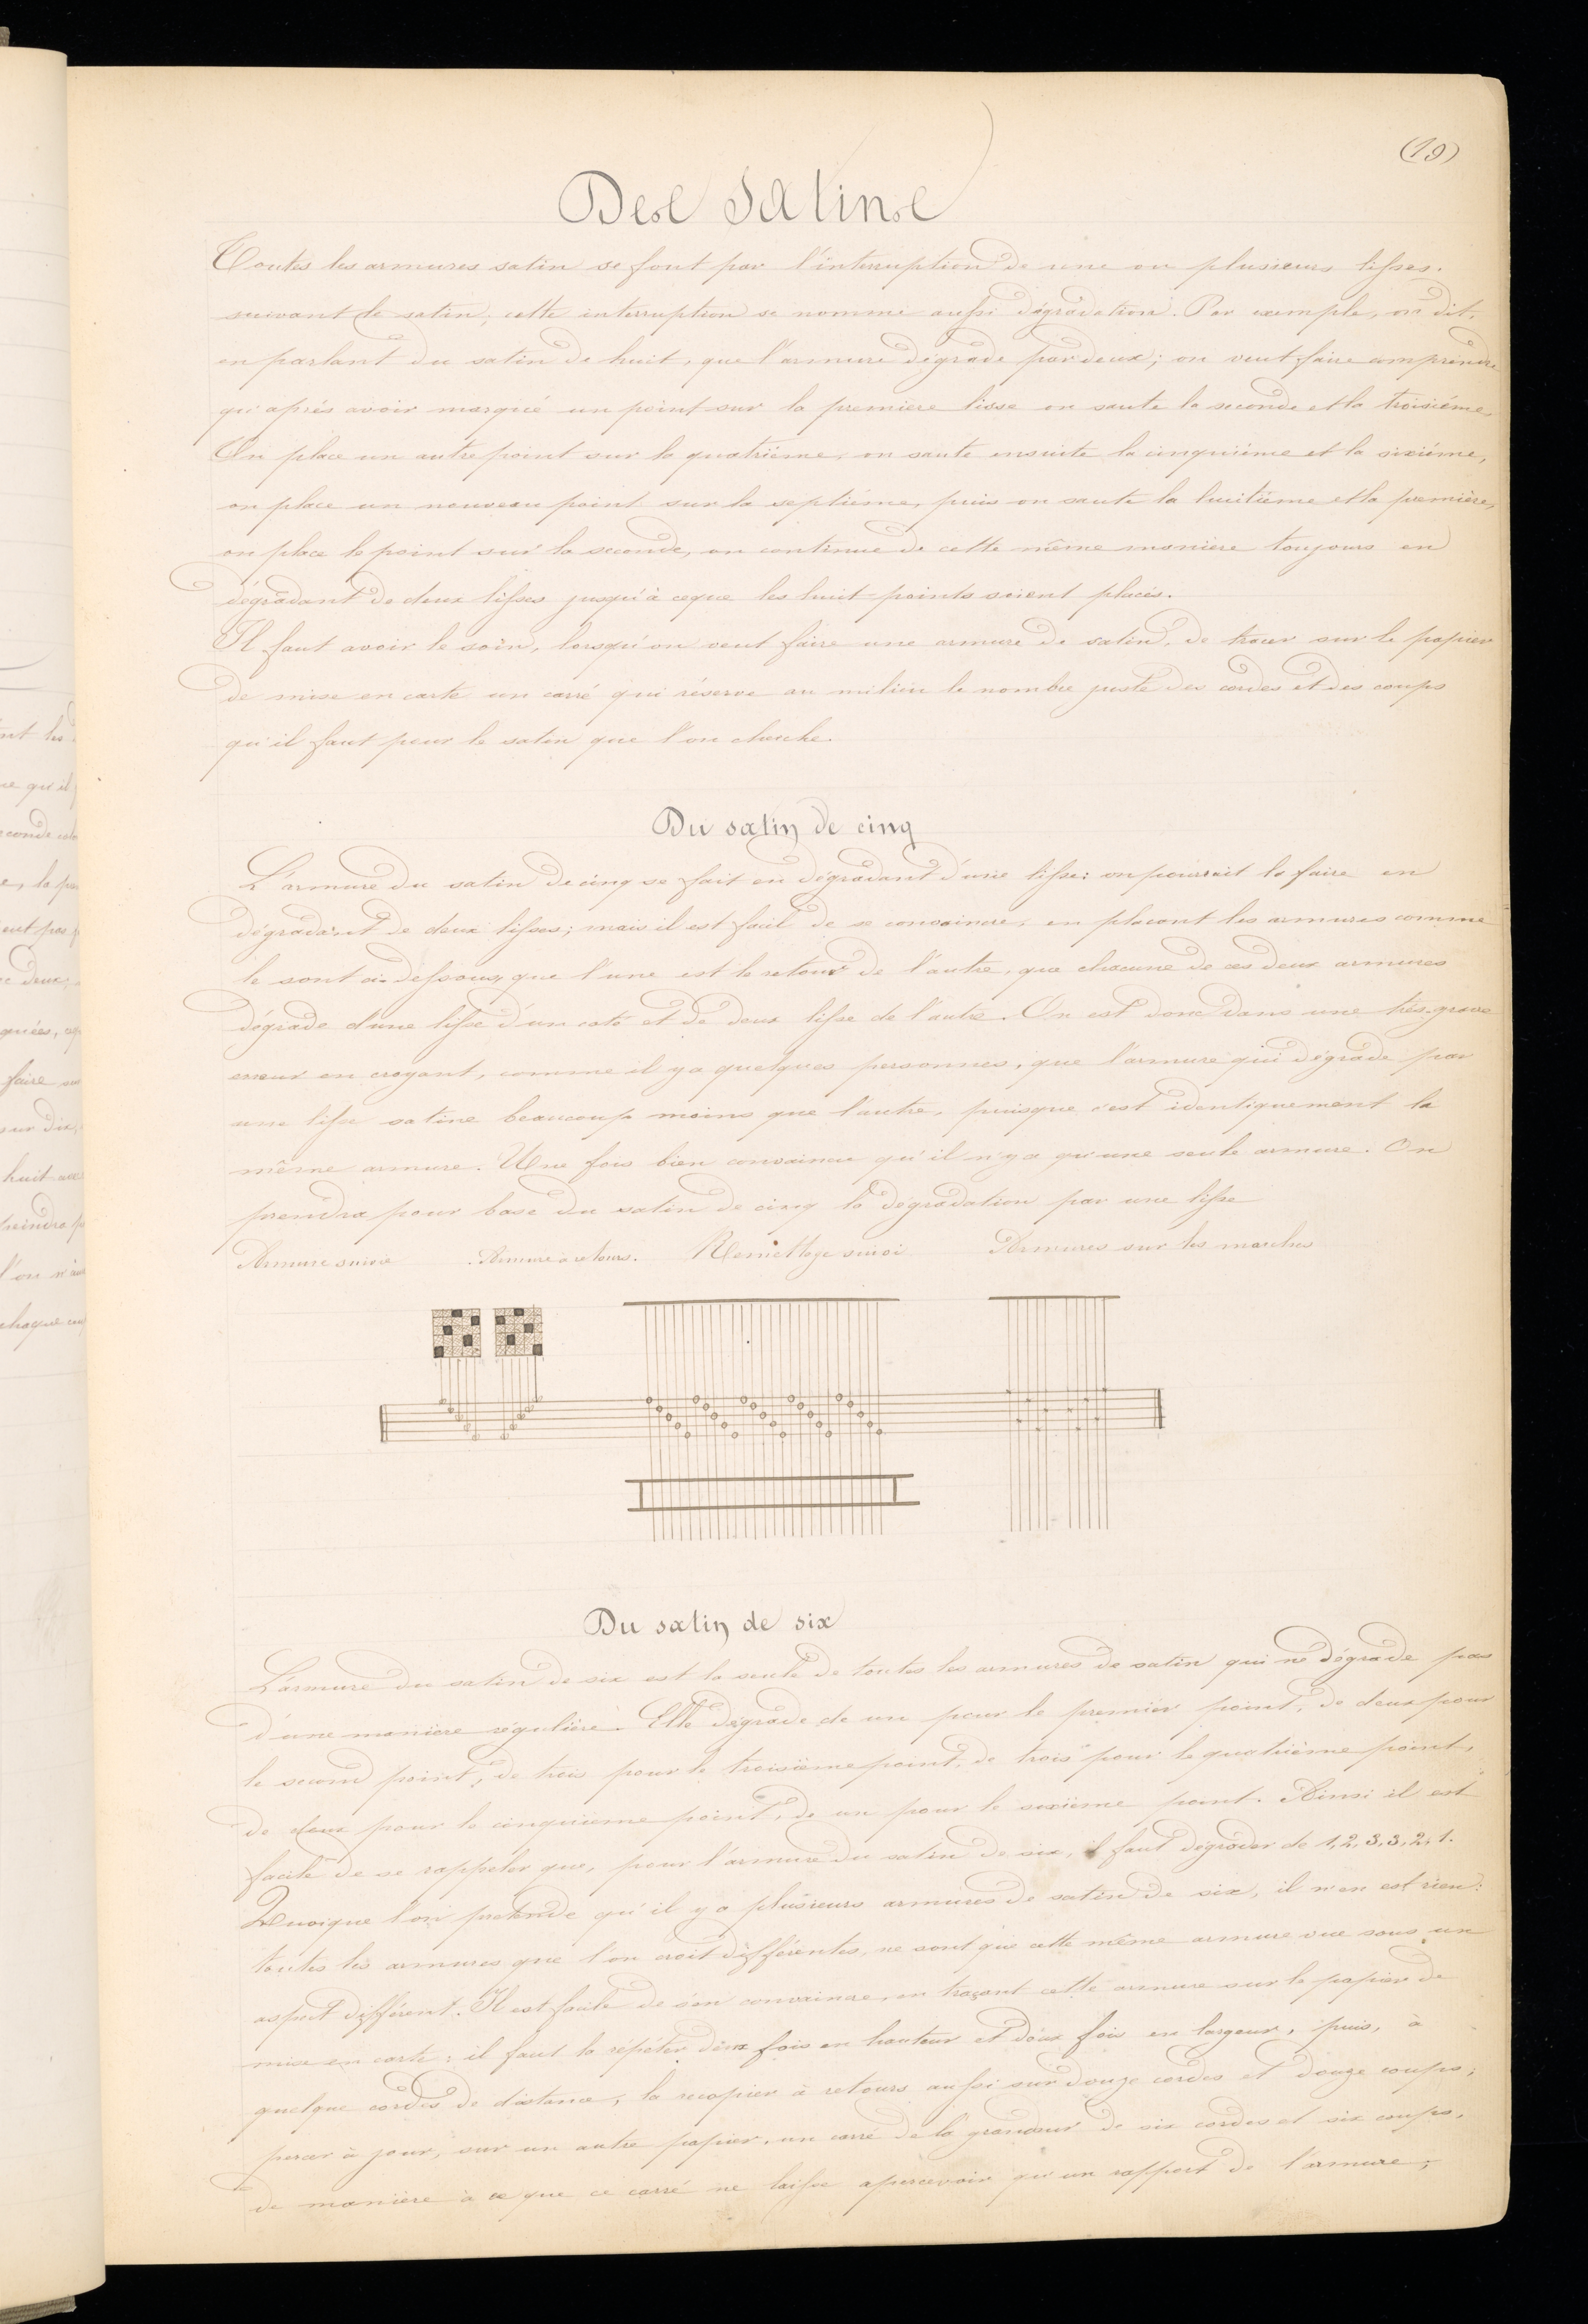 (19)
Des Satins
Toutes les armures satin se font par l'interruption de une ou plusieurs lisses.
suivant le satin, cette interruption se nomme aussi dégradation. Par exemple, on dit,
en parlant du satin de huit, que l'armure dégrade par deux; on veut faire comprendre
qu'après avoir marqué un point sur la première lisse on saute la seconde et la troisième.
On place un autre point sur la quatrième, on saute ensuite la cinquième et la sixième,
on place un nouveau point sur la septième, puis on saute la huitième et la première,
on place le point sur la seconde, on continue de cette même manière toujours en
dégradant de deux lisses jusqu'à ceque les huit points soient placés.
Il faut avoir le soin, lorsqu'on veut faire une armure de satin, de tracer sur le papier
de mise en carte un carré qui réserve au milieu le nombre juste des cordes et des coups
qu'il faut pour le satin que l'on cherche.
Du satin de cinq
L'armure du satin de cinq se fait en dégradant d'une lisse: on pourrait la faire en
dégradant de deux lisses; mais il est facil de se convaincre, en placant les armures comme
le sont ci-dessous, que l'une est le retour de l'autre, que chacune de ces deux armures
dégrade d'une lisse d'un coté et de deux lisse de l'autre. On est donc dans une très-grave
erreur en croyant, comme il y a quelques personnes, que l'armure qui dégrade par
une lisse satine beaucoup moins que l'autre, puisque c'est identiquement la
même armure. Une fois bien convaincu qu'il n'y a qu'une seule armure. On
prendra pour base du satin de cinq la dégradation par une lisse
Armure suivie Armure à retours. Remettage suivi Armures sur les marches
Du satin de six
L'armure du satin de six est la seule de toutes les armures de satin qui ne dégrade pas
d'une manière régulière. Elle dégrade de un pour le premier point, de deux pour
le second point, de trois pour le troisième point, de trois pour le quatrième point,
de deux pour le cinquième point, de un pour le sixième point. Ainsi il est
facile de se rappeler que, pour l'armure du satin de six, il faut dégrader de 1, 2, 3, 3, 2, 1.
Quoique l'on prétende qu'il y a plusieurs armures de satin de six, il n'en est rien:
toutes les armures que l'on croit différentes, ne sont que cette même armure vue sous un
aspect différent. Il est facile de s'en convaincre, en traçant cette armure sur le papier de
mise en carte; il faut la répéter deux fois en hauteur et deux fois en largeur, puis, à
quelque cordes de distance, la recopier à retours aussi sur douze cordes et douze coups;
percer à jour, sur un autre papier, un carré de la grandeur de six cordes et six coups,
de manière à ce que ce carré ne laisse apercevoir qu'un rapport de l'armure;